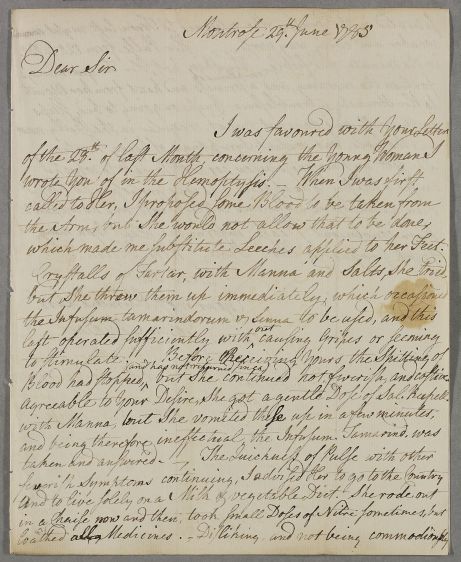 Montrose 29th June 1765
Dear Sir
I was favoured with Your Letter
of the 29th of last Month, concerning the Young Woman I
wrote You of in the Hemoptysis. — When I was first
called to Her, I proposed some Blood to be taken from
the Arm, but She would not allow that to be done,
which made me substitute Leeches applied to her Feet.
Crystalls of Tartar, with Manna and Salts, She tried
but She threw them up immediately, which occasioned
the Infusum tamarindorum & Senna to be used, and this
last operated sufficiently without causing Gripes or seeming
to stimulate. Before receiving Yours the Spitting of
Blood had stopped, and has not returned since, but She continued hot feverish, and
Agreeable to Your Desire, She got a gentle Dose of Sal. Rupell.
with Manna, but She vomited these up in a few minutes,
and being therefore ineffectual, the Infusum Tamarind. was
taken and answered. — The Quickness of Pulse with other
feverish Symptoms continuing, I advised Her to go to the Country
and to live solely on a Milk & vegetable Diet. She rode out
in a Chaise now and then, took small Doses of Nitre sometimes, but
loathed all Medicines. — Disliking and not being commodiously